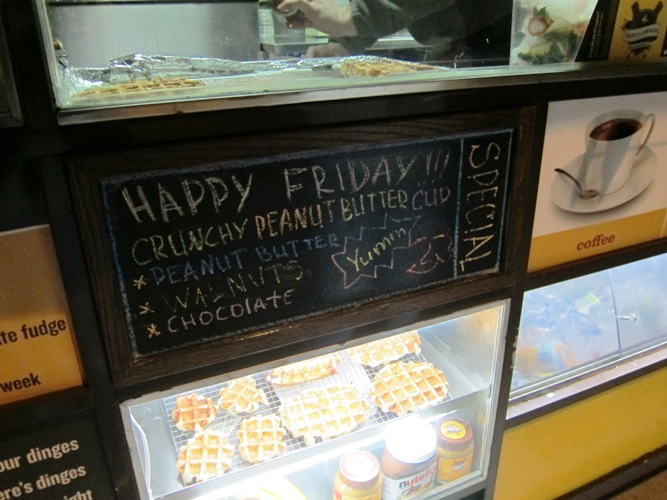 HAPPY FRIDAY !!!
CRUNCHY PEANUT BUTTER CUP
* PEANUT BUTTER
* WALNUTS
* CHOCOLATE
Yumm
SPECIAL
coffee
fudge
week
our dinges
ere's dinges
ght
nutella